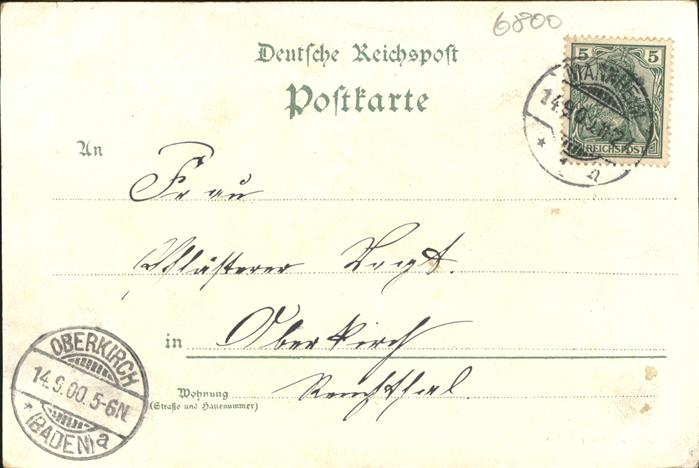 6800
Deutsche Reichspost
Postkarte
5 5
REICHSPOST
MANNHEIM
14.9.00
An
Frau
Pflästerer Vogt.
in Oberkirch
Wohnung
(Straße und Hausnummer)
Renchthal.
OBERKIRCH
14.9.00.5-6N.
* (BADEN) a